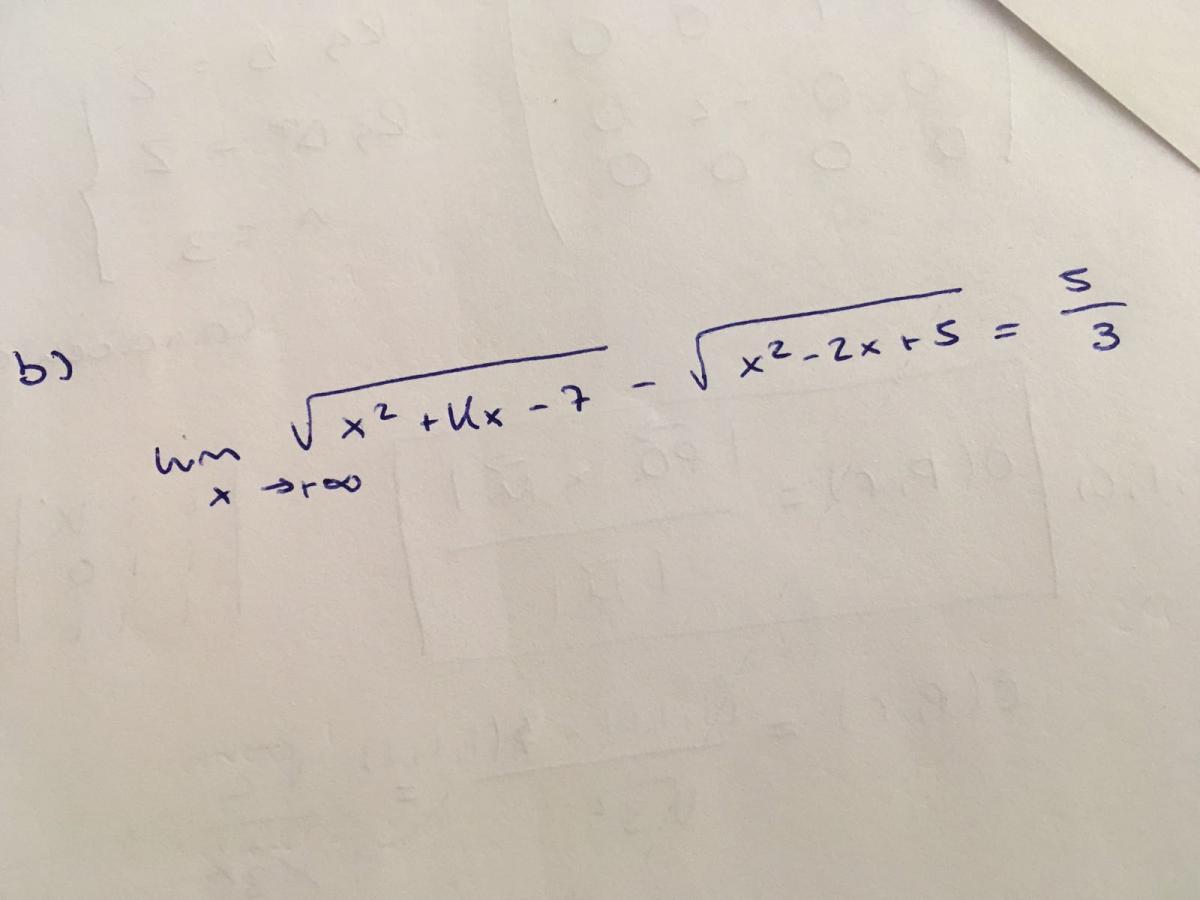 b)
lim x → +∞ √(x² + Kx - 7) - √(x² - 2x + 5) = 5/3